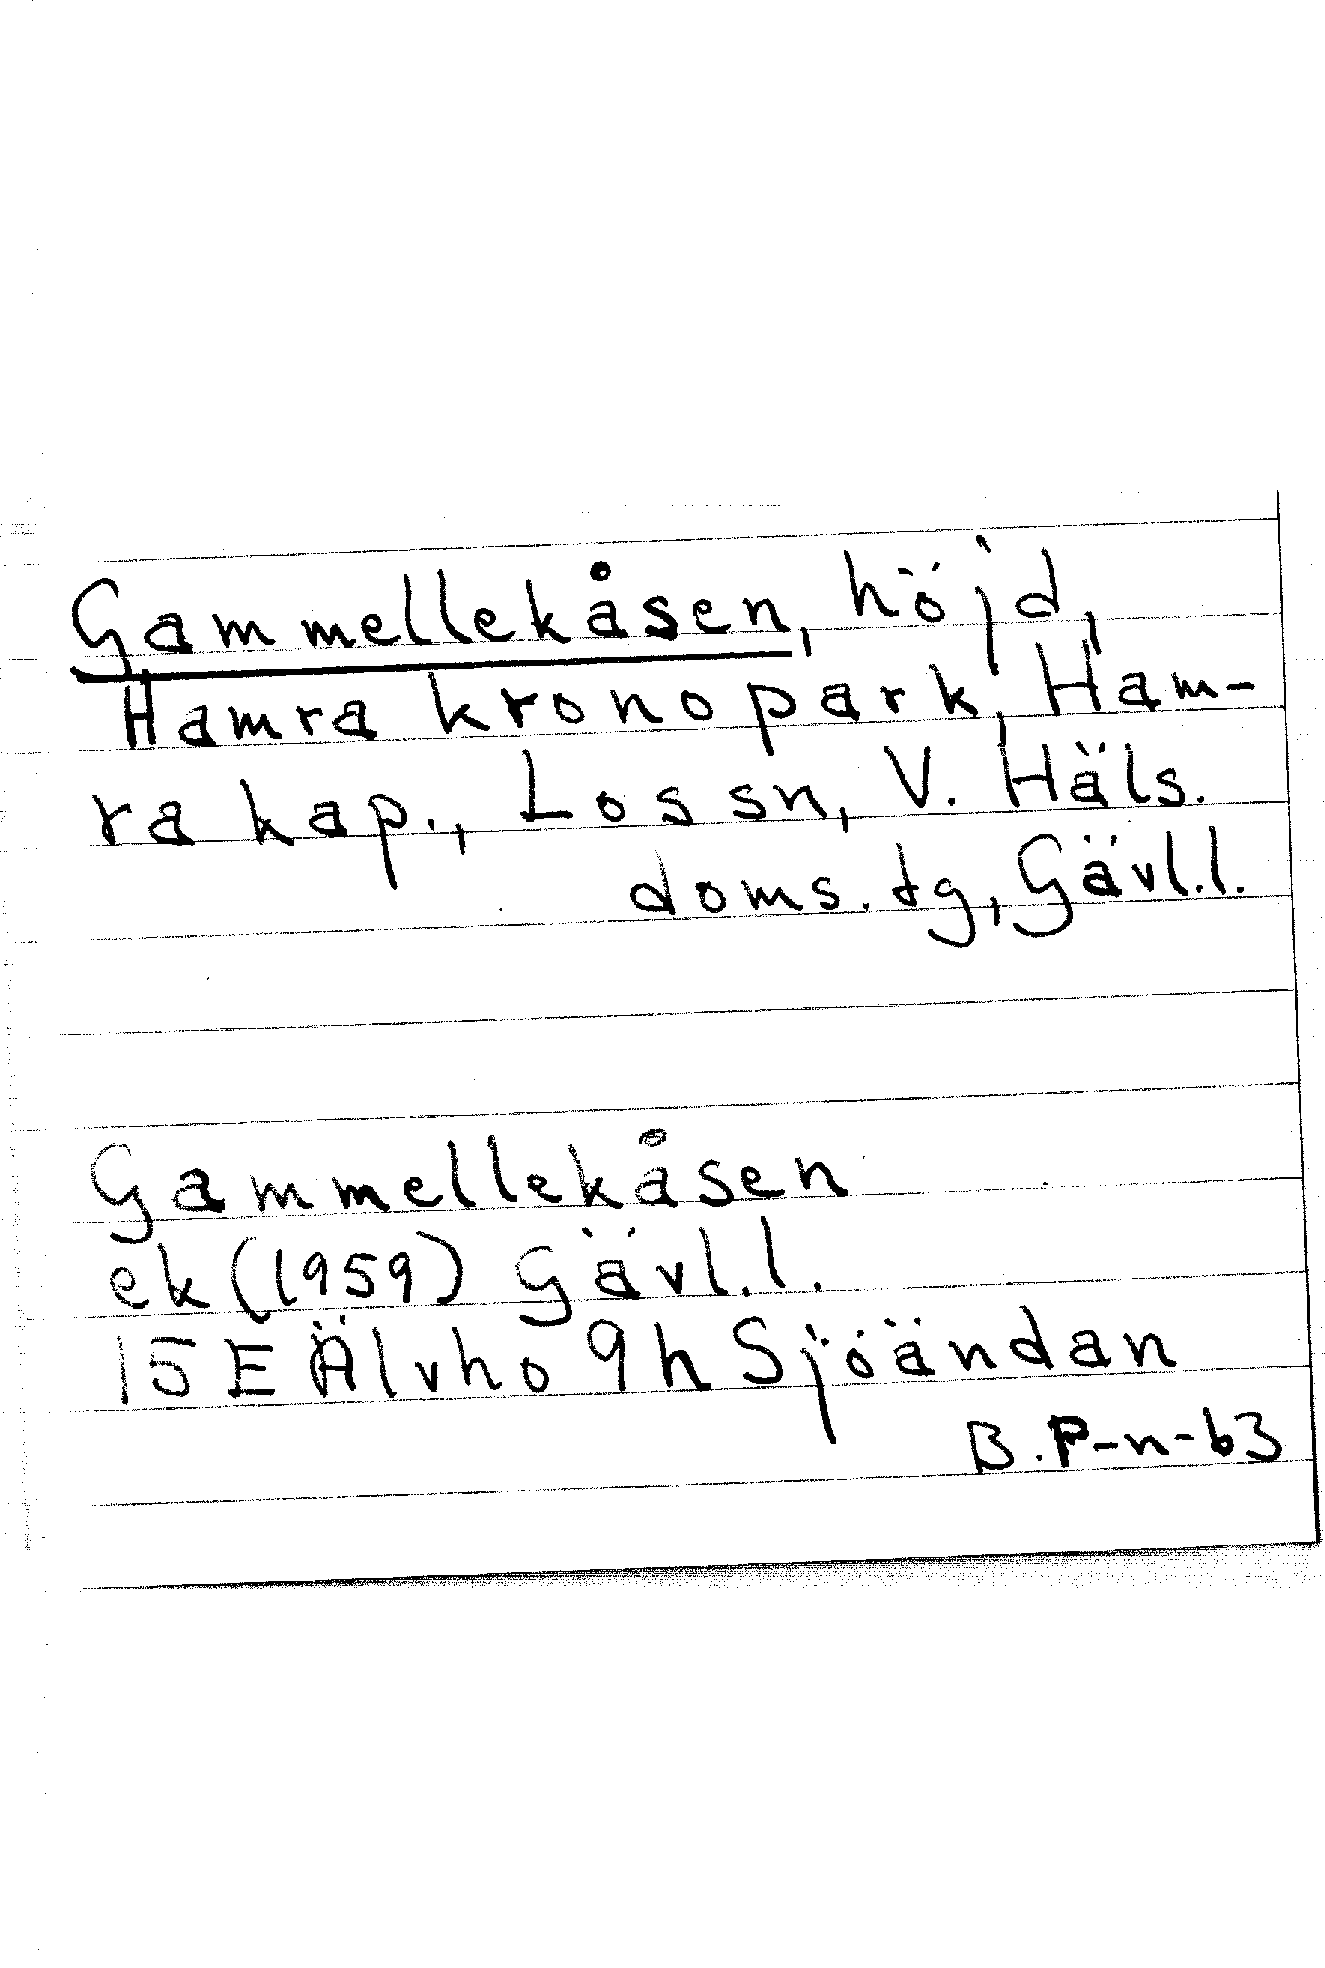 Gammellekåsen, höjd,
Hamra kronopark, Ham-
ra kap., Los sn, V. Häls.
doms. tg, Gävl.l.
Gammellekåsen
ek (1959) Gävl.l.
15E Älvho 9h Sjöändan
B. P-n-63